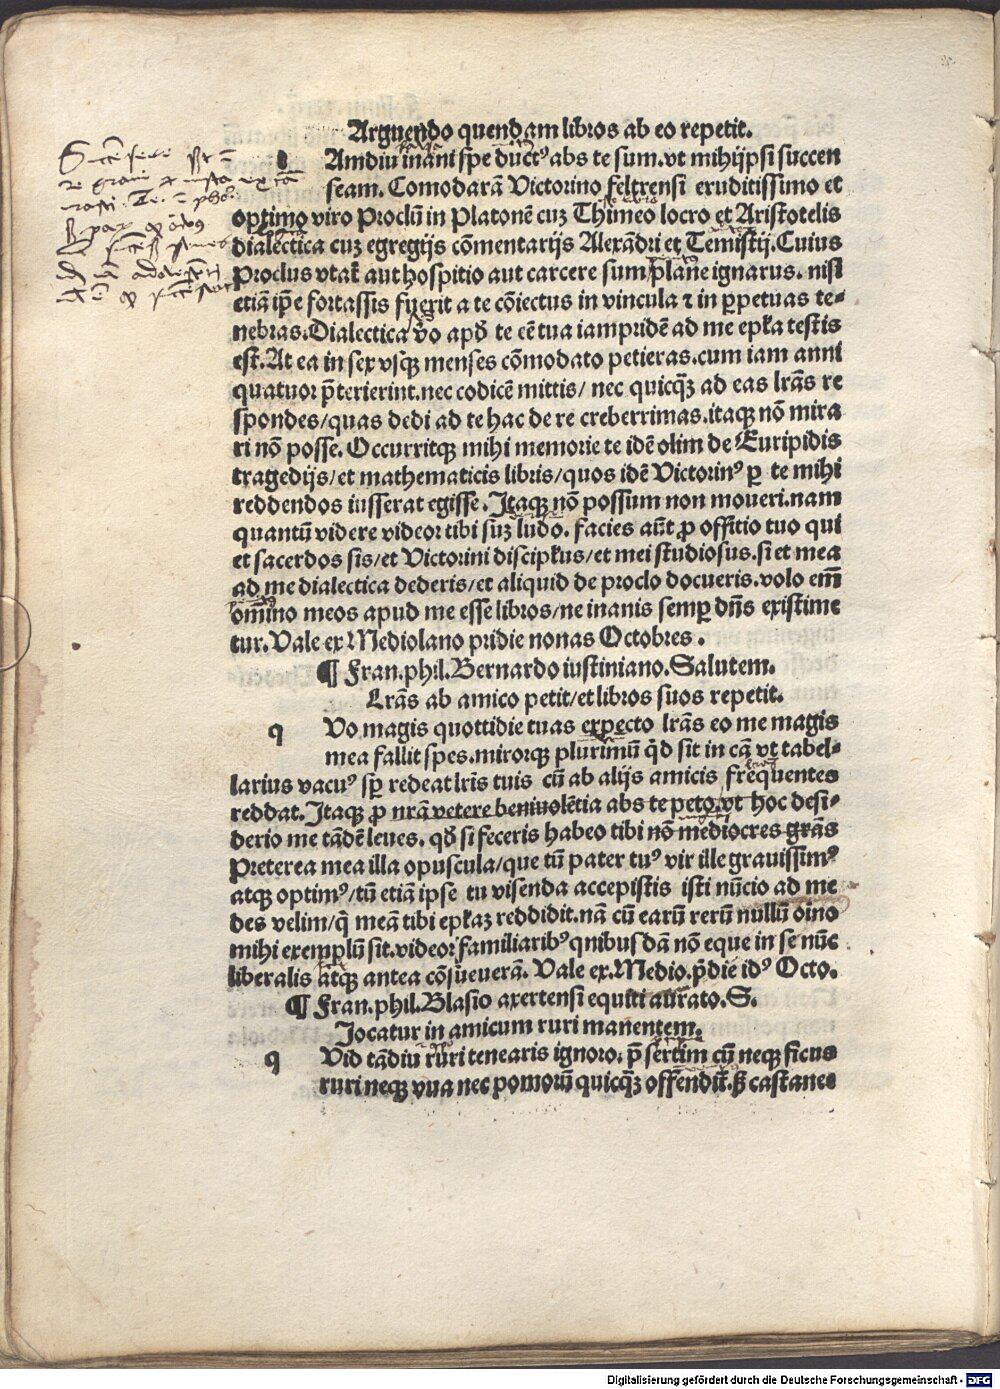 Arguendo quendam libros ab eo repetit.
t Amdiu inani spe duct⁹ abs te sum. vt mihijpsi succen
seam. Comodarã Victorino feltrensi eruditissimo et
optimo viro Proclũ in Platonẽ cuz Thimeo locro et Aristotelis
dialectica cuz egregijs cõmentarijs Alexãdri et Temistij. Cuius
Proclus vtaꝶ aut hospitio aut carcere sum plane ignarus. nisi
etiã ip̃e fortassis fuerit a te cõiectus in vincula ⁊ in ꝑpetuas te⸗
nebras. Dialectica v̉o apđ te eẽ tua iampridẽ ad me ep̃ła testis
est. At ea in sex vsqꝫ menses cõmodato petieras. cum iam anni
quatuor p̃terierint. nec codicẽ mittis/ nec quicqꝫ ad eas lr̃as re
spondes/ quas dedi ad te hac de re creberrimas. itaqꝫ nõ mira
ri nõ posse. Occurritqꝫ mihi memorie te idẽ olim de Euripidis
tragedijs/ et mathematicis libris/ quos idẽ Victorin⁹ ꝑ te mihi
reddendos iusserat egisse. Itaqꝫ nõ possum non moueri. nam
quantũ videre videor tibi suꝫ ludo. facies aũt ꝓ offitio tuo qui
et sacerdos sis/ et Victorini discipłus/ et mei studiosus. si et mea
ad me dialectica dederis/ et aliquid de proclo docueris. volo em̃
omĩno meos apud me esse libros/ ne inanis semꝑ dñs existime
tur. Vale ex Mediolano pridie nonas Octobres.
¶ Fran. phil. Bernardo iustiniano. Salutem.
Lr̃as ab amico petit/ et libros suos repetit.
q Vo magis quottidie tuas expecto lr̃as eo me magis
mea fallit spes. mirorqꝫ plurimũ q̉d sit in cã vt tabel⸗
larius vacu⁹ sꝑ redeat lr̃is tuis cũ ab alijs amicis frequentes
reddat. Itaqꝫ ꝓ nr̃ã vetere beniuolẽtia abs te peto. vt hoc desi⸗
derio me tãdẽ leues. qđ si feceris habeo tibi nõ mediocres grãs
Preterea mea illa opuscula/ que tũ pater tu⁹ vir ille grauissim⁹
atqꝫ optim⁹/ tũ etiã ipse tu visenda accepistis isti nũcio ad me
des velim/ q̉ meã tibi ep̃łaꝫ reddidit. nã cũ earũ rerũ nullũ oĩno
mihi exemplũ sit. videor familiarib⁹ qnibusdã nõ eque in se nũc
liberalis atqꝫ antea cõsueuerã. Vale ex. Medio. p̃die id⁹ Octo.
¶ Fran. phil. Blasio axertensi equiti aurato. S.
Jocatur in amicum ruri manentem.
q Vid tãdiu ruri tenearis ignoro. p̃sertim cũ neqꝫ ficus
ruri neqꝫ vua nec pomorũ quicqꝫ offendit̃. ꝫ castanee
Digitalisierung gefördert durch die Deutsche Forschungsgemeinschaft - DFG